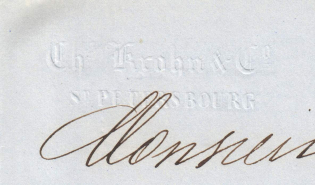 Ch. Krohn & Cº
ST PETERSBOURG
Monsieur